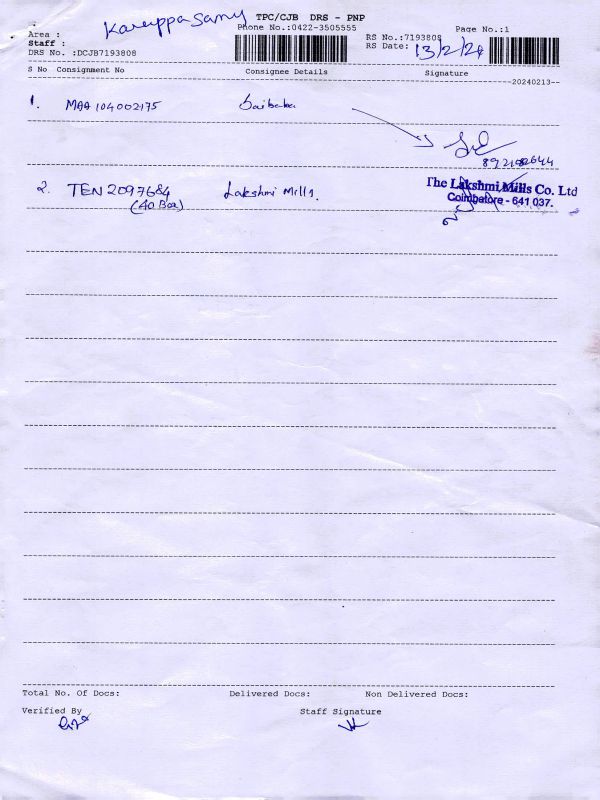 Karuppasamy
TPC/CJB DRS - PNP
Area :
Phone No.:0422-3505555
Page No.:1
Staff :
RS No.:7193808
DRS No. :DCJB7193808
RS Date: 13/2/24
S No Consignment No Consignee Details Signature
20240213
1. MAA 104002175 Saibaba
8921082644
2. TEN 2097684 Lakshmi Mills.
(40 Box)
The Lakshmi Mills Co. Ltd
Coimbatore - 641 037.
Total No. Of Docs: Delivered Docs: Non Delivered Docs:
Verified By Staff Signature